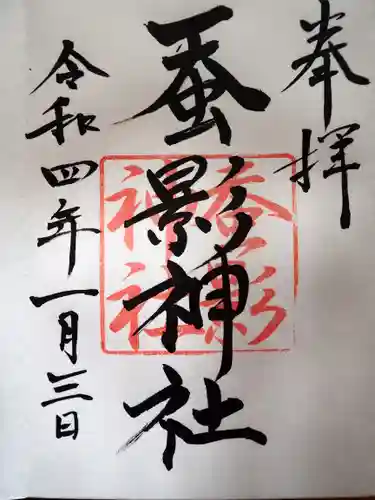 奉拝
蚕影神社
令和四年一月三日
蚕影
神社